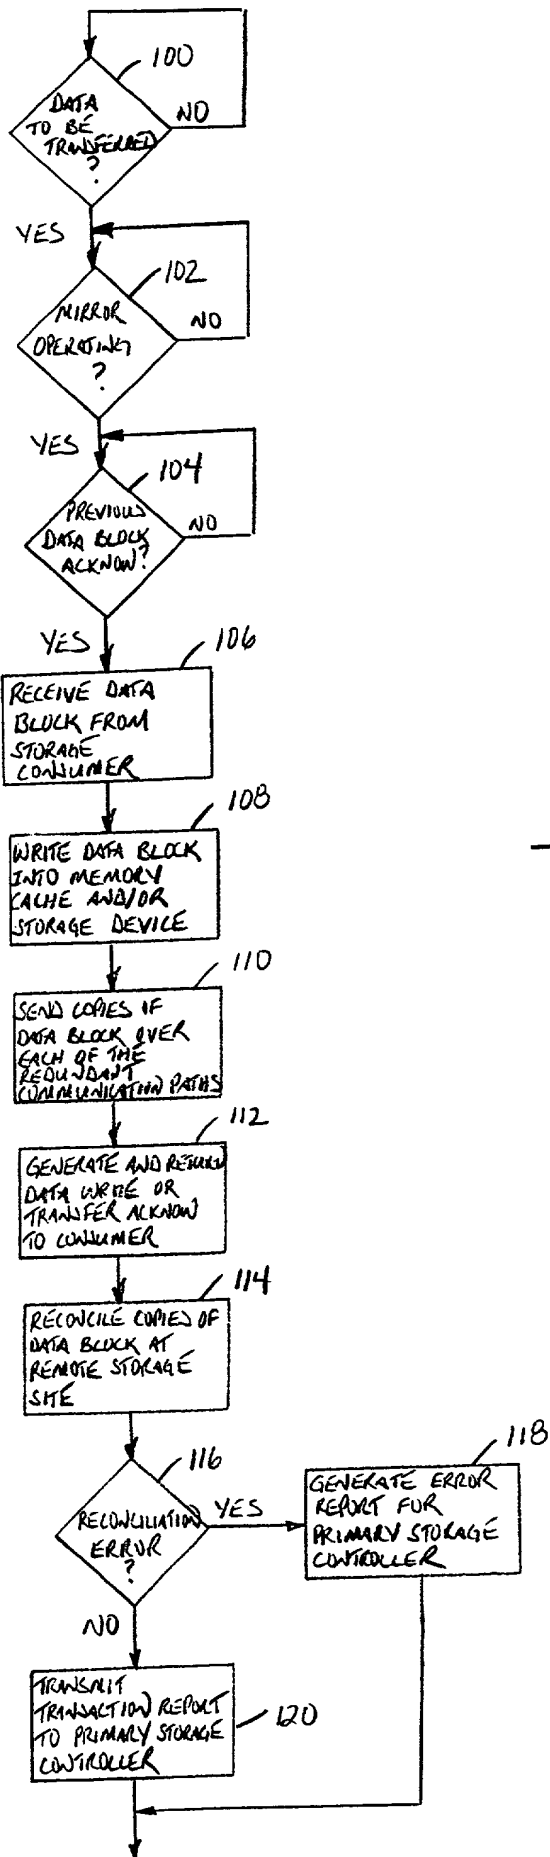 100
DATA
TO BE
TRANSFERRED
?
NO
YES
102
MIRROR
OPERATING
?
NO
YES
104
PREVIOUS
DATA BLOCK
ACKNOW?
NO
YES
106
RECEIVE DATA
BLOCK FROM
STORAGE
CONSUMER
108
WRITE DATA BLOCK
INTO MEMORY
CACHE AND/OR
STORAGE DEVICE
110
SEND COPIES IF
DATA BLOCK OVER
EACH OF THE
REDUNDANT
COMMUNICATION PATHS
112
GENERATE AND RETURN
DATA WRITE OR
TRANSFER ACKNOW
TO CONSUMER
114
RECONCILE COPIES OF
DATA BLOCK AT
REMOTE STORAGE
SITE
116
RECONCILIATION
ERROR
?
YES
118
GENERATE ERROR
REPORT FOR
PRIMARY STORAGE
CONTROLLER
NO
TRANSMIT
TRANSACTION REPORT
TO PRIMARY STORAGE
CONTROLLER
120